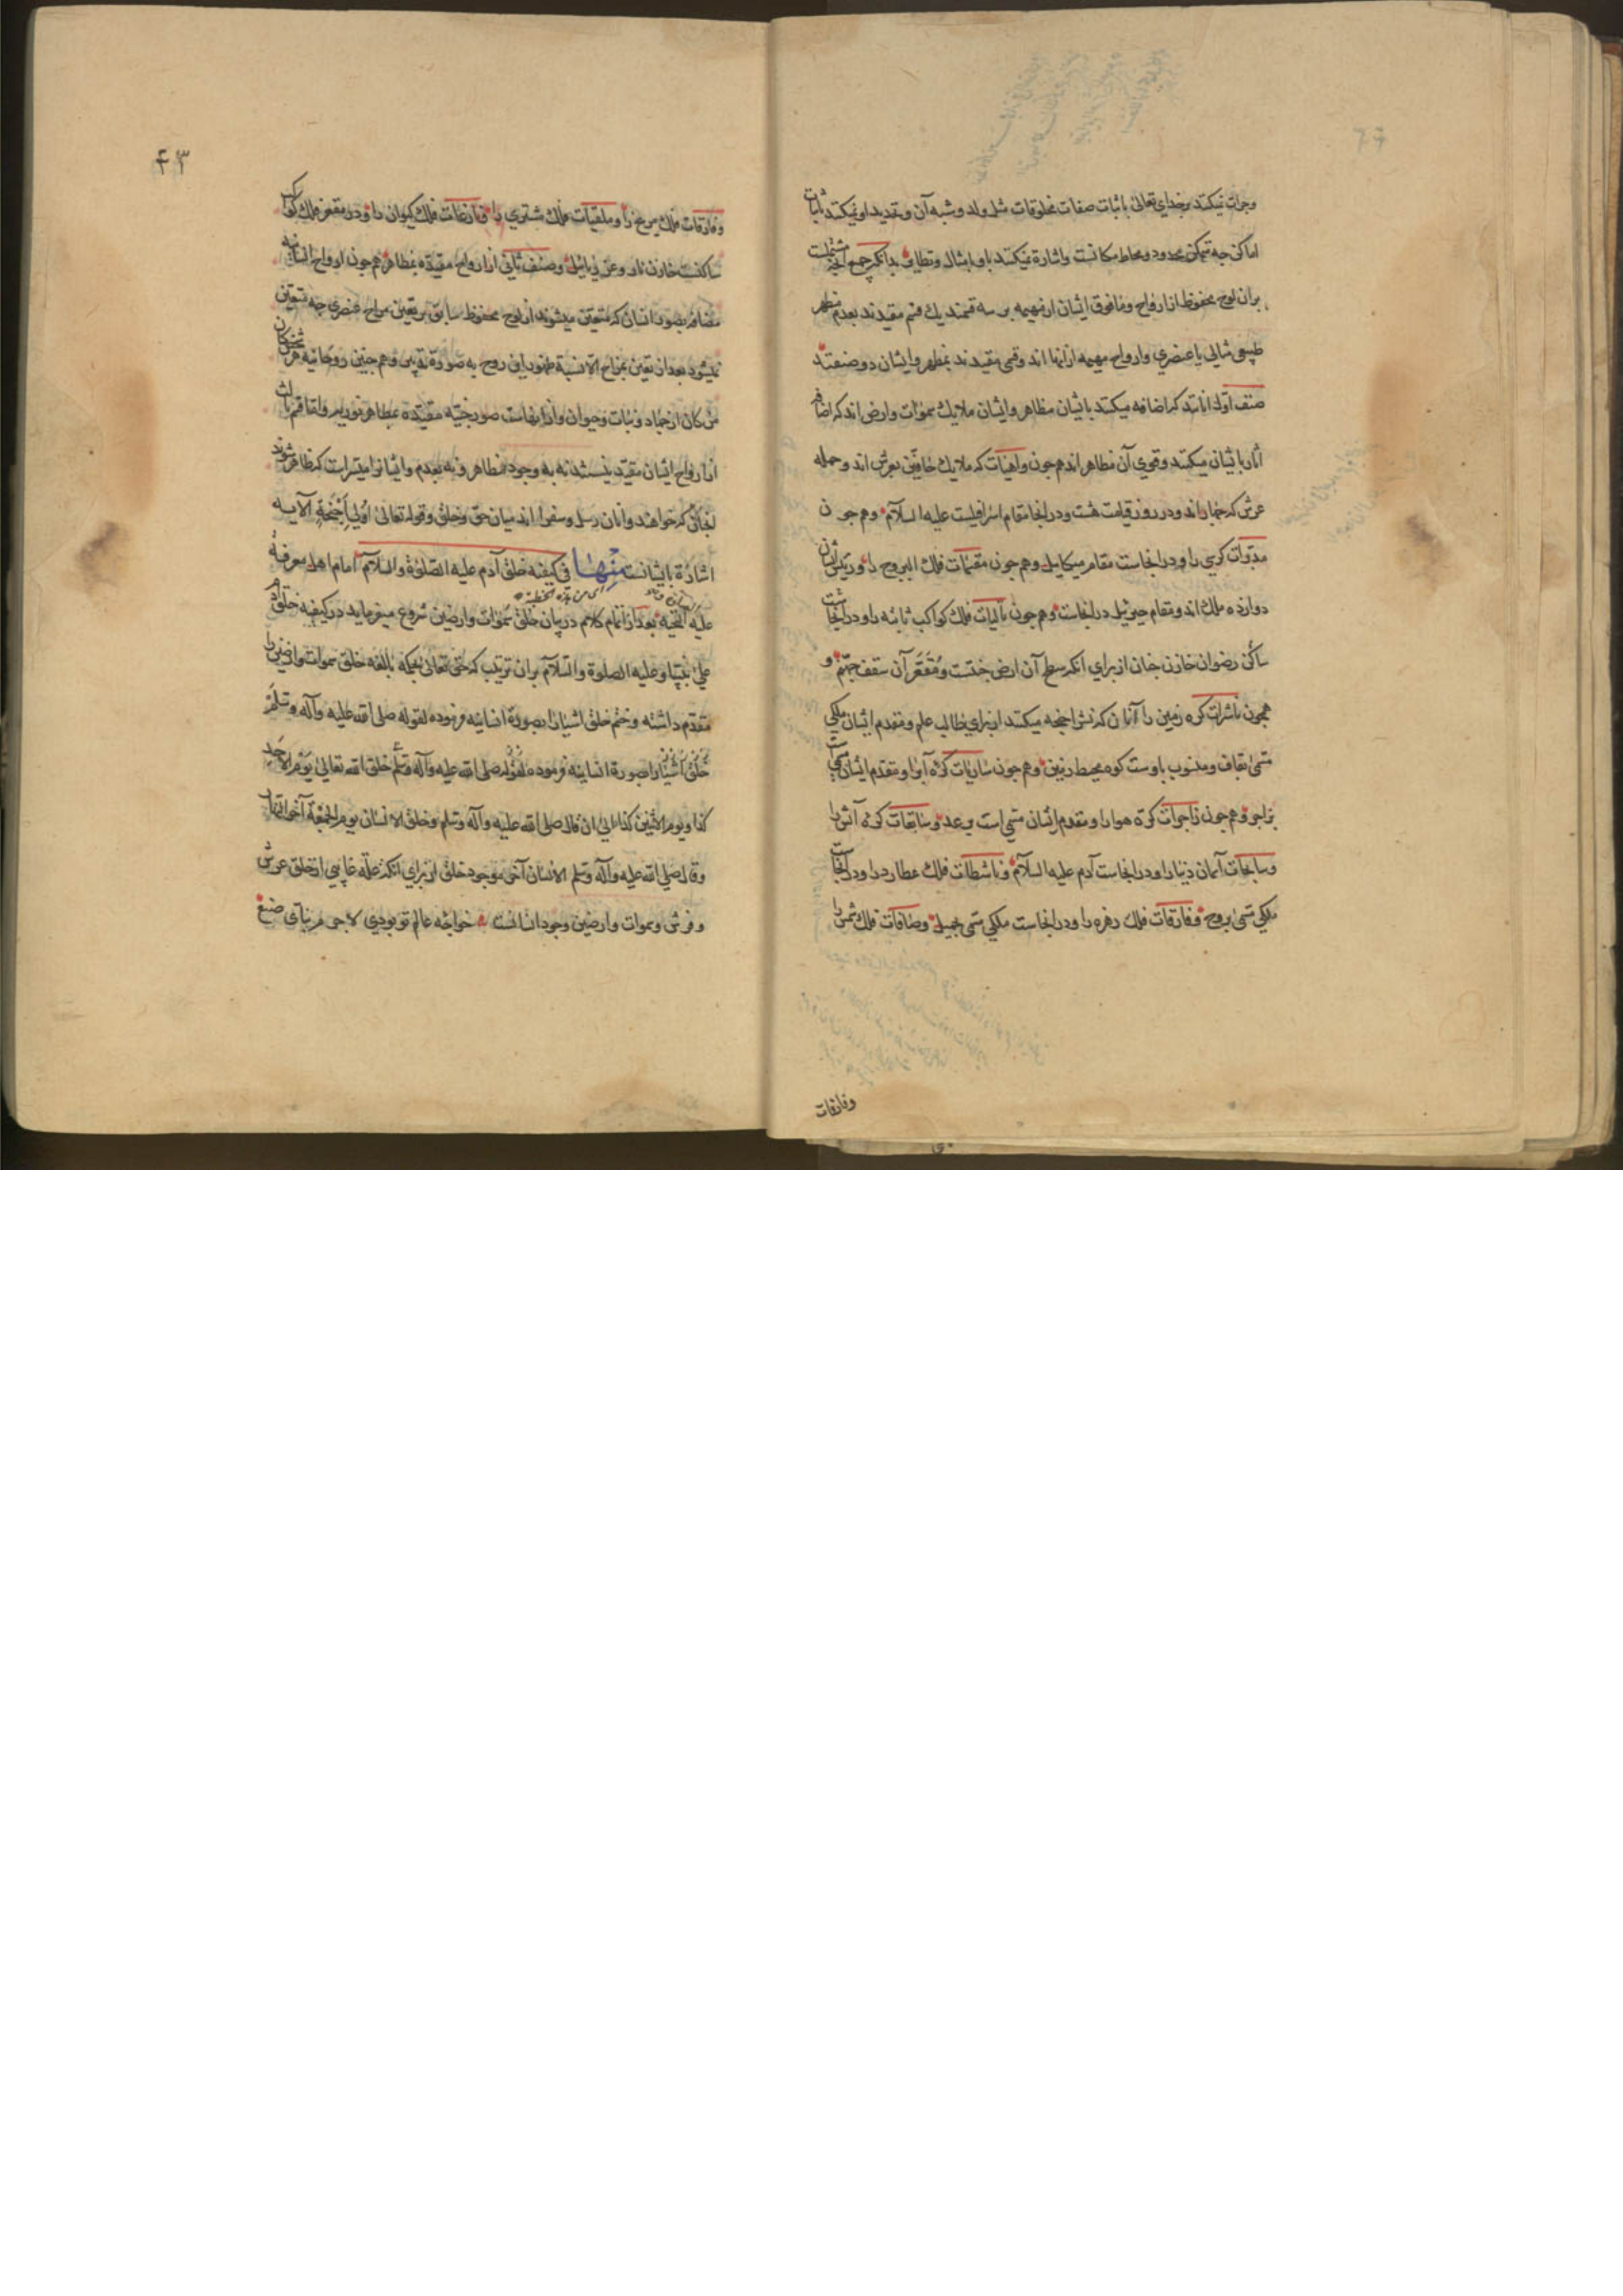 وجرات نمیکنند برخدای تعالی باثبات صفات مخلوقات مثل ولد و شبه آن و تحدید او نمیکنند باثبات
اماکن چه متمکن محدود و محاط مکانست واشارة نمیکنند باو بدانکه جمیع
بران لوح محفوظ از ارواح وما فوق ایشان از مهیمه بر سه قسمند یک قسم مقیدند بعدم مظهر
طبیعی مثالی یا عنصری وارواح مهیمه ازینها اند وقسمی مقیدند بمظهر وایشان دو صنفند
صنف اول انانند که اضافه میکنند بایشان مظاهر وایشان ملایک سموات وارض اند که اضافه
اثار بایشان میکنند وقوی آن مظاهر اند همچون واهیات که ملایک حافین بعرش اند وحمله
عرش که چهار اند ودر روز قیامت هشت ودر انجا مقام اسرافیلست علیه السلام وهمچون
مدبرات کرسی را ودر انجاست مقام میکاییل وهمچون مقسمات فلک البروج را ورئیس ایشان
دوازده ملک اند ومقام جبرئیل در انجاست وهمچون تالیات فلک کواکب ثابته را ودر انجاست
ساکن رضوان خازن جنان از برای انکه سطح آن ارض جنتست ومقعر آن سقف جهنم و
همچون ناشرات کره زمین را آنان که نشر اجنحه میکنند از برای طالب علم ومقدم ایشان ملکی
مسمی بقاف ومنسوب باوست کوه محیط بزمین وهمچون ساریات کره آب را ومقدم ایشان
وهمچون زاجرات کره هوا را ومقدم ایشان مسمی است برعد وسابقات کره آتش را
وسابحات آسمان دنیا را ودر انجاست آدم علیه السلام وناشطات فلک عطارد را ودر انجاست
ملکی مسمی بروح وفارقات فلک زهره را ودر انجاست ملکی مسمی بجمیل وصافات فلک شمس را
وفارقات
۴۳
وفارقات فلک مریخ را وملقیات فلک مشتری را ونازعات فلک کیوان را ودر مقعر فلک کواکب
ساکنست خازن نار وصنف ثانی از ارواح مقیده بمظاهر همچون ارواح انسانیه
مضافه بصور انسان که متعین میشوند از لوح محفوظ سابق بر تعین مزاج عنصری چه متعین
نمیشود بعد از تعین بمزاج الا نسبة ظهور این روح به صورة بدنی وهمچنین روحانیه هر متکون
من کان از جماد ونبات وحیوان وازینهاست صور جنیه مقیده بمظاهر نوریه واما قسم ثالث
از ارواح ایشان مقید نیستند نه به وجود مظاهر ونه به عدم وایشانرا میسر است که ظاهر شوند
انجایی که خواهند وانان رسل وسفرا اند میان حق وخلق وقوله تعالی اولی اجنحة الآیه
اشارة بایشانست منها فی کیفیة خلق آدم علیه الصلوة والسلام امام اهل معرفة
علیه التحیه بعد از اتمام کلام در بیان خلق سموات وارضین شروع میفرماید در کیفیه خلق آدم
علی نبینا وعلیه الصلوة والسلام بران ترتیب که حق تعالی بحکمه بالغه خلق سموات وارضین را
مقدم داشته وختم خلق اشیا را بصورة انسانیه فرموده لقوله صلی الله علیه وآله وسلم
خلق اشیا را بصورة انسانیه فرموده لقوله صلی الله علیه وآله وسلم خلق الله تعالی یوم الاحد
کذا ویوم الاثنین کذا الی ان قال صلی الله علیه وآله وسلم وخلق الانسان یوم الجمعة آخر النهار
وقال صلی الله علیه وآله وسلم الانسان آخر موجود خلق از برای انکه علة غایی از خلق عرش
وفرش وسموات وارضین وجود انسانست خواجه عالم تو بودی لاجرم